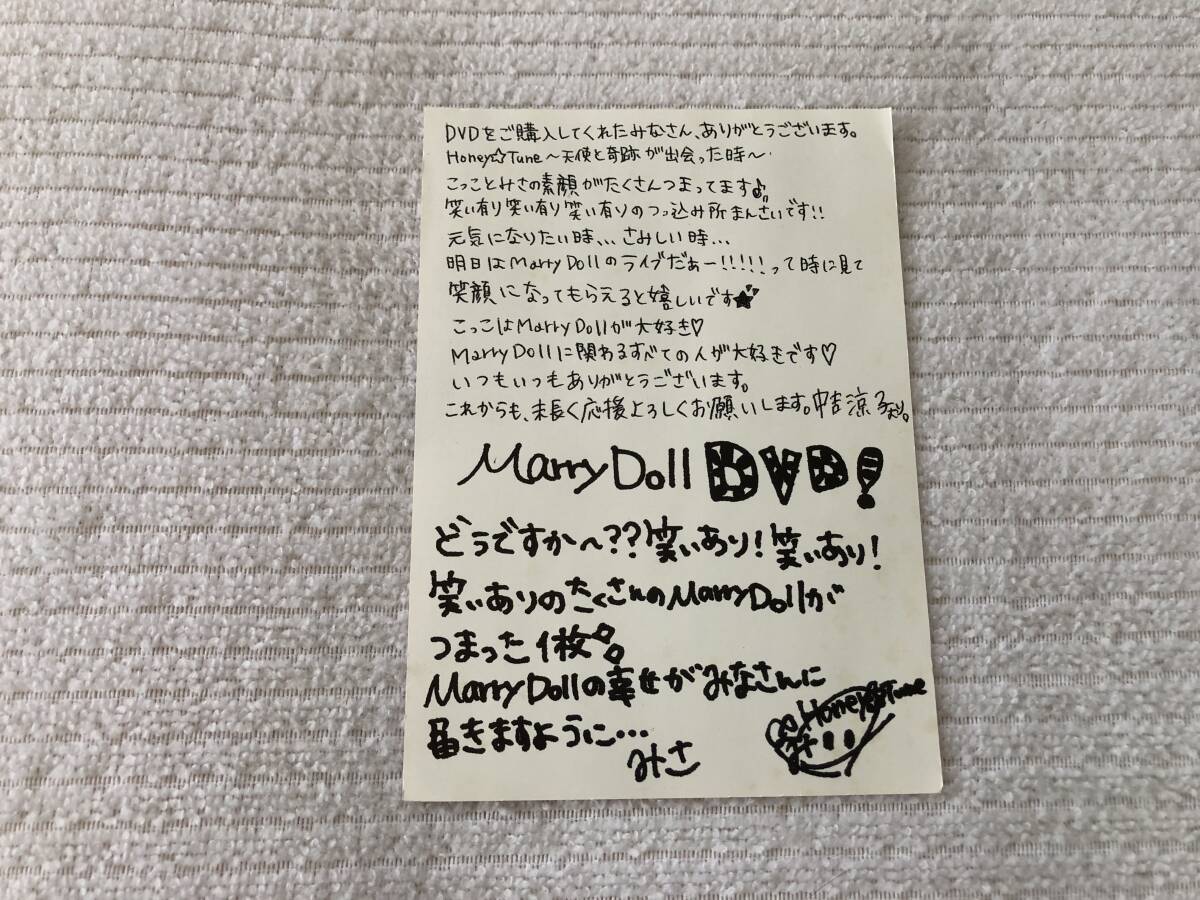 DVDをご購入してくれたみなさん、ありがとうございます。
Honey☆Tune〜天使と奇跡が出会った時〜
こっことみさの素顔がたくさんつまってます♪
笑い有り笑い有り笑い有りのつっ込み所まんさいです!!
元気になりたい時...さみしい時...
明日はMarry Dollのライブだぁー!!!!!って時に見て
笑顔になってもらえると嬉しいです★
こっこはMarry Dollが大好き♡
Marry Dollに関わるすべての人が大好きです♡
いつもいつもありがとうございます。
これからも、末長く応援よろしくお願いします。中吉涼子より。
Marry Doll DVD!
どうですか〜??笑いあり!笑いあり!
笑いありのたくさんのMarry Dollが
つまった1枚
Marry Dollの幸せがみなさんに
届きますように...
みさ
Honey☆Tune